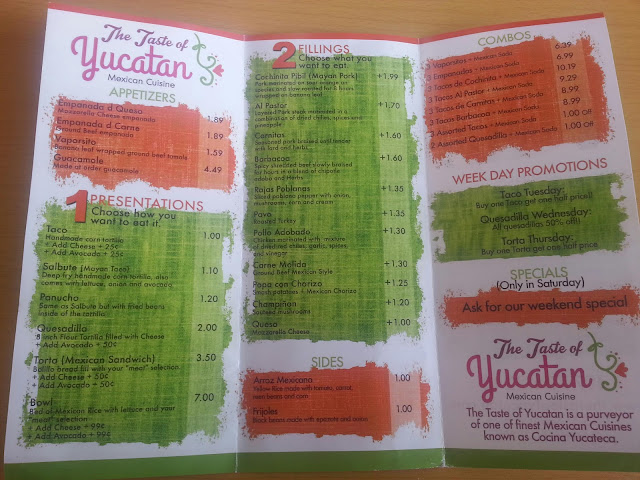 The Taste of
Yucatan
Mexican Cuisine
APPETIZERS
Empanada d Queso 1.89
Mozzarella Cheese empanada
Empanada d Carne 1.89
Ground Beef empanada
Vaporsito 1.59
Banana leaf wrapped ground beef tamals
Guacamole 4.49
Made at order guacamole
1 PRESENTATIONS
Choose how you
want to eat it.
Taco 1.00
Handmade corn tortilla
+ Add Cheese + 25¢
+ Add Avocado + 25¢
Salbute (Mayan Taco) 1.10
Deep fry handmade corn tortilla, also
comes with lettuce, onion and avocado
Panucho 1.20
Same as Salbute but with fried beans
inside of the tortilla
Quesadilla 2.00
8 inch Flour Tortilla filled with Cheese
+ Add Avocado + 50¢
Torta (Mexican Sandwich) 3.50
Bolillo bread fill with your "meat" selection
+ Add Cheese + 50¢
+ Add Avocado + 50¢
Bowl 7.00
Bed of Mexican Rice with lettuce and your
"meat" selection
+ Add Cheese + 99¢
+ Add Avocado + 99¢
2 FILLINGS
Choose what you
want to eat.
Cochinita Pibil (Mayan Pork) +1.99
Pork marinated on sour orange and
species and slow roasted for 8 hours
wrapped on banana leaf
Al Pastor +1.70
Layered Pork steak marinated in a
combination of dried chilies, spices and
pineapple
Carnitas +1.60
Seasoned pork braised until tender
with lard and herbs
Barbacoa +1.60
Spicy shredded beef slowly braised
for hours in a blend of chipotle
adobo and Herbs
Rajas Poblanas +1.35
Sliced poblano pepper with onion,
mushrooms, corn and cream
Pavo +1.35
Roasted Turkey
Pollo Adobado +1.30
Chicken marinated with mixture
of dried red chiles, garlic, spices,
and vinegar
Carne Molida +1.30
Ground Beef Mexican Style
Papa con Chorizo +1.25
Smash potatoes + Mexican Chorizo
Champiñon +1.20
Sauteed mushrooms
Queso +1.00
Mozzarella Cheese
SIDES
Arroz Mexicana 1.00
Yellow Rice made with tomato, carrot,
Frijoles 1.00
Black beans made with epazote and onion
COMBOS
3 Vaporsitos + Mexican Soda 6.39
3 Empanadas + Mexican Soda 6.99
3 Tacos de Cochinita + Mexican Soda 10.19
3 Tacos Al Pastor + Mexican Soda 9.29
3 Tacos de Carnitas + Mexican Soda 8.99
3 Tacos Barbacoa + Mexican Soda 8.99
3 Assorted Tacos + Mexican Soda 1.00 Off
2 Assorted Quesadilla + Mexican Soda 1.00 Off
WEEK DAY PROMOTIONS
Taco Tuesday:
Buy one Taco get one half price!!
Quesadilla Wednesday:
All quesadillas 50% off!!
Torta Thursday:
Buy one Torta get one half price
SPECIALS
(Only in Saturday)
Ask for our weekend special
The Taste of
Yucatan
Mexican Cuisine
The Taste of Yucatan is a purveyor
of one of finest Mexican Cuisines
known as Cocina Yucateca.